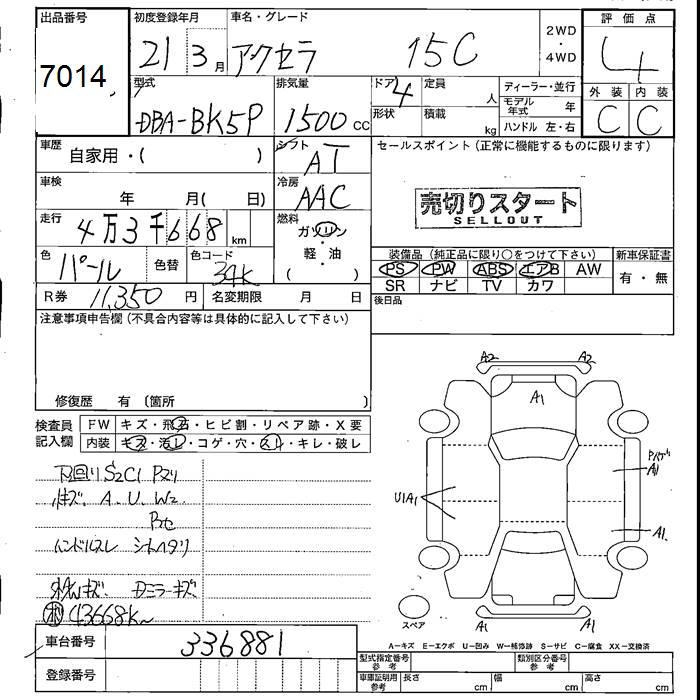 出品番号
7014
初度登録年月
21 3月
車名・グレード
アクセラ 15C
2WD
・
4WD
評価点
4
型式
DBA-BK5P
排気量
1500 cc
ドア
4
形状
定員
人
積載
kg
ディーラー・並行
モデル年式 年
ハンドル 左・右
外装 内装
C C
車歴
自家用・( )
シフト
AT
セールスポイント (正常に機能するものに限ります)
車検
年 月( 日)
冷房
AAC
売切りスタート
SELLOUT
走行
4万3千668 km
燃料
ガソリン
・
軽・油
( )
色
パール
色替
色コード
34K
装備品 (純正品に限り○をつけて下さい)
新車保証書
PS PW ABS エアB AW
SR ナビ TV カワ
有・無
R券 11,350 円
名変期限 月 日
後日品
注意事項申告欄 (不具合内容等は具体的に記入して下さい)
修復歴 有 〔箇所 〕
検査員
記入欄
FW キズ・飛石・ヒビ割・リペア跡・X要
内装 キズ・汚レ・コゲ・穴・スレ・キレ・破レ
下回りS2C1 Pヌリ
キズ. A. U. W2
ハンドルスレ シートヘタリ
キズ. Dミラーキズ
43668K
A2 A2
A1
U1A1
A1
A1
A1 A1
スペア
A−キズ E−エクボ U−凹み W−補修跡 S−サビ C−腐食 XX−交換済
車台番号
336881
登録番号
型式指定番号
参考
類別区分番号
参考
車庫証明用
参考
長さ cm
幅 cm
高さ cm